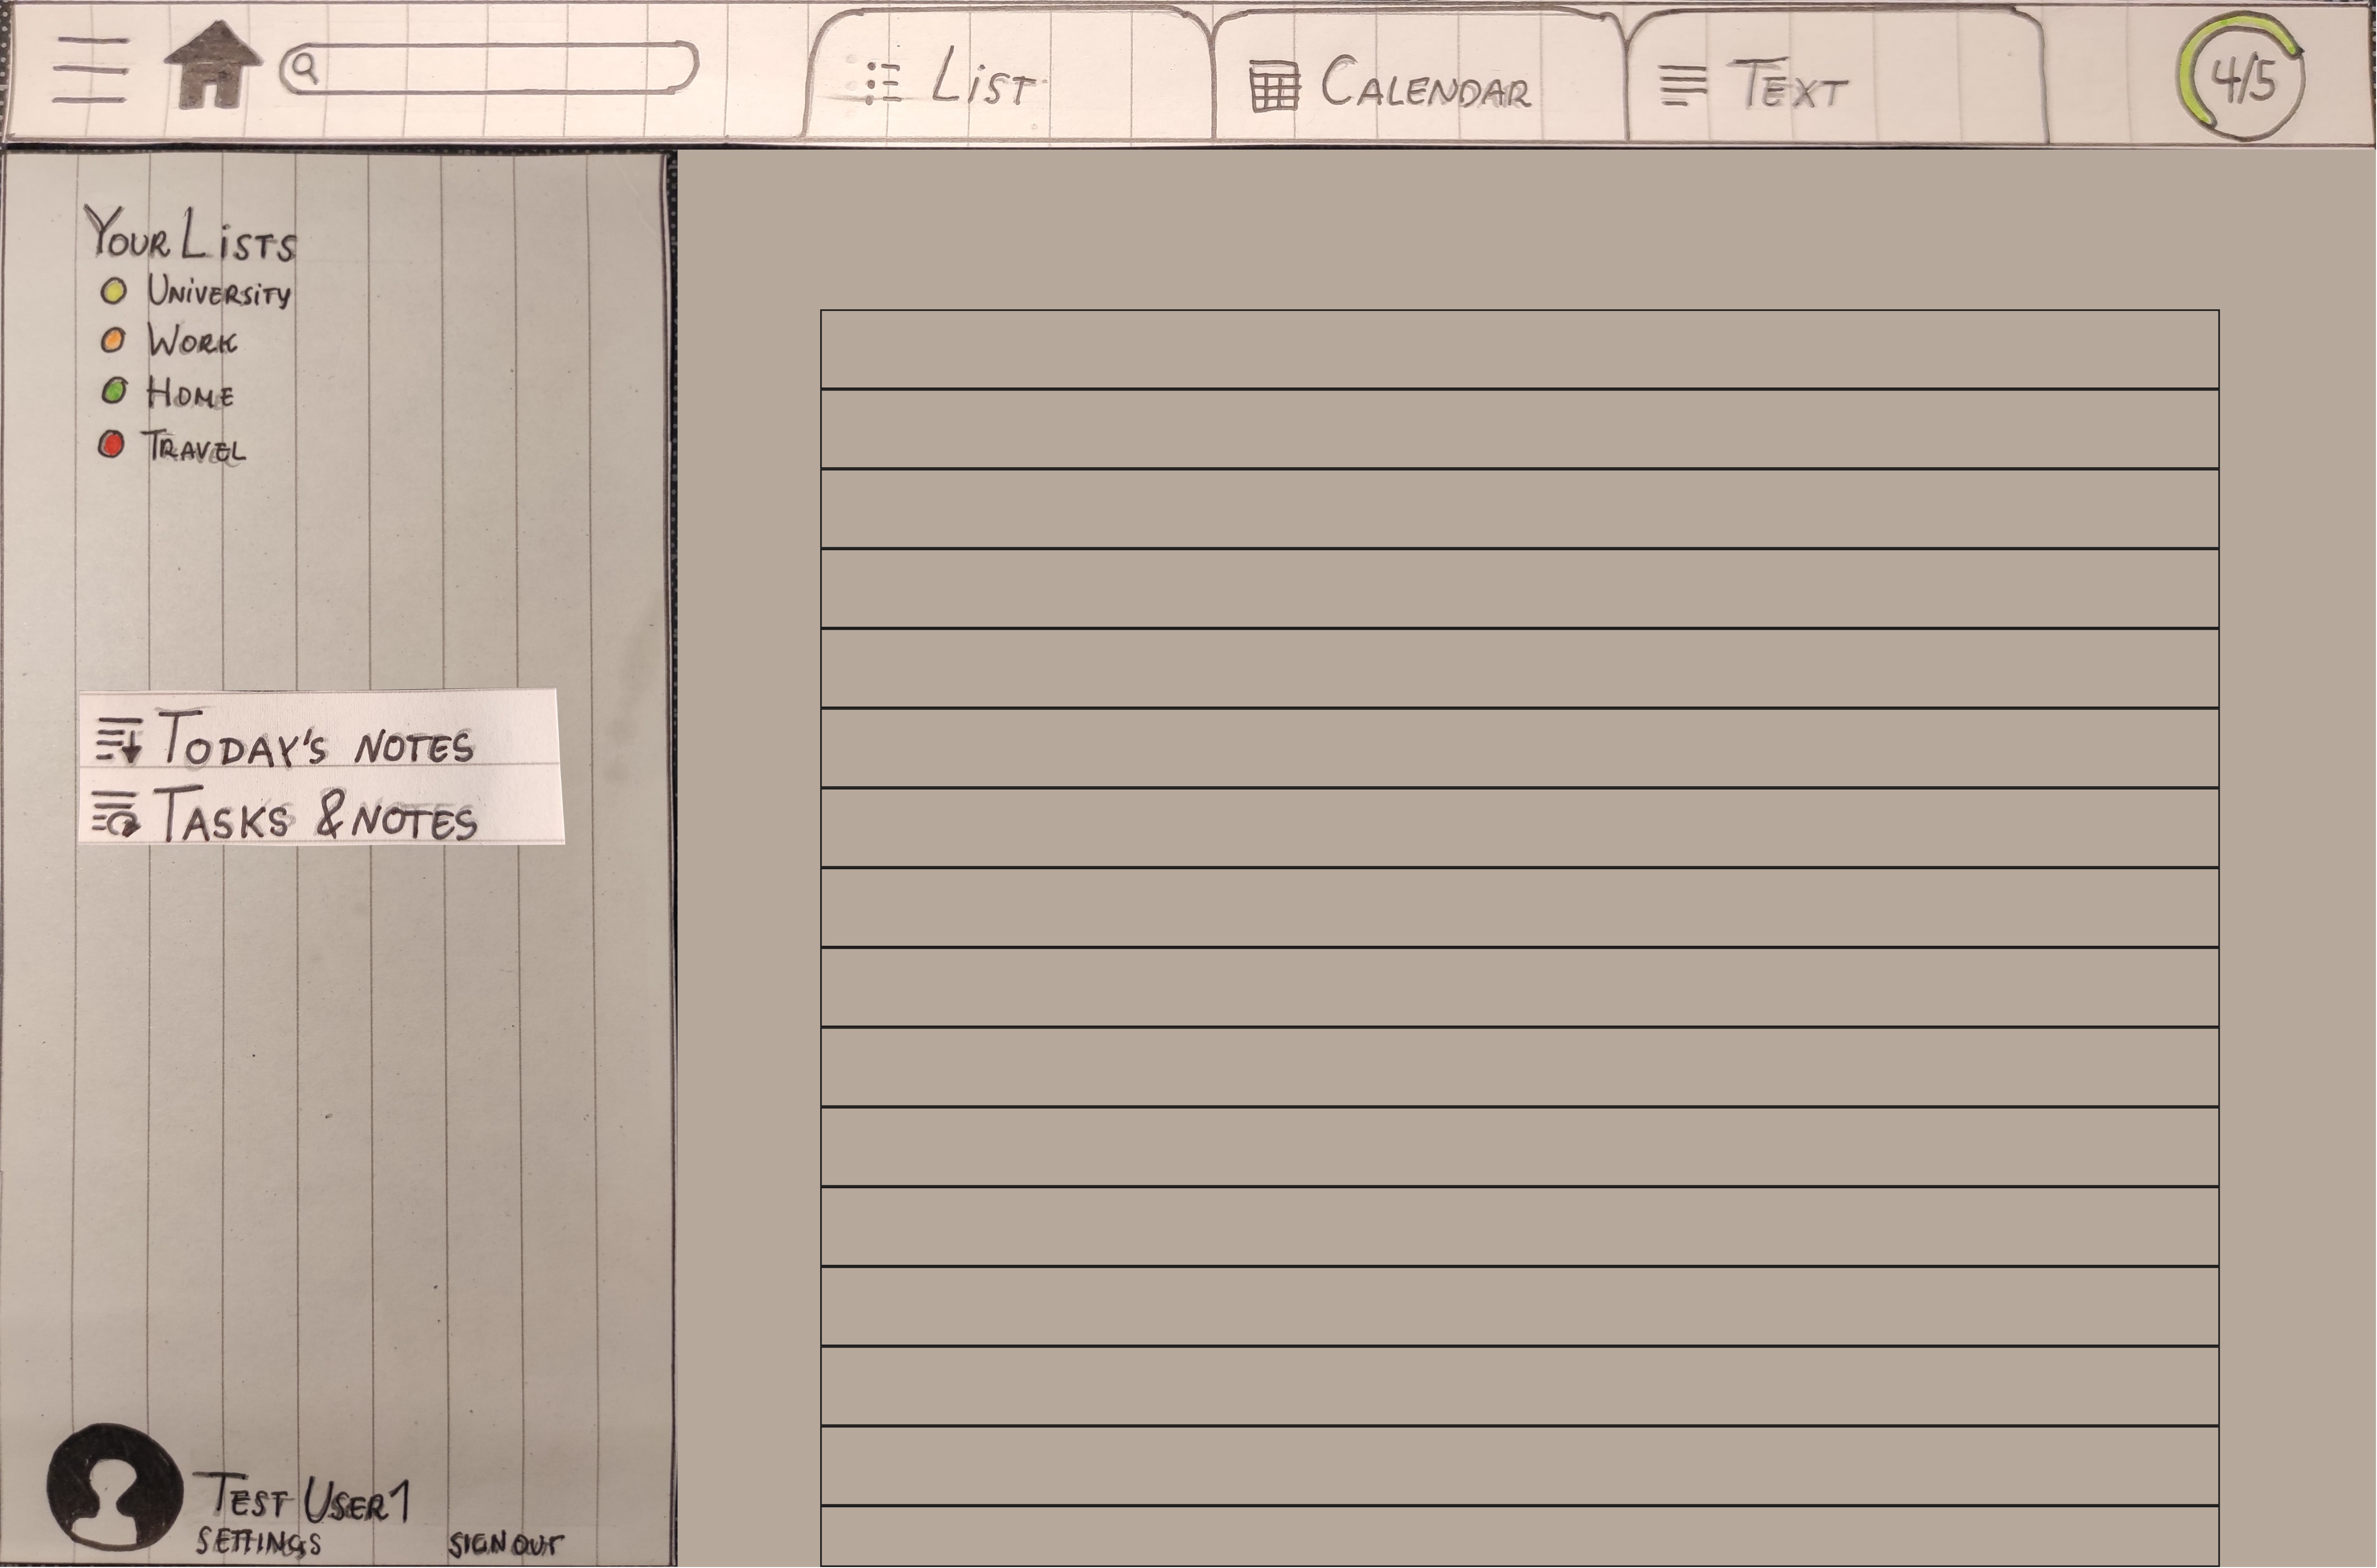 LiST
CALENDAR
TEXT
4/5
YOUR LiSTS
UNiVERSiTY
WORK
HOME
TRAVEL
TODAY'S NOTES
TASKS & NOTES
TEST USER1
SETTINGS
SIGN OUT